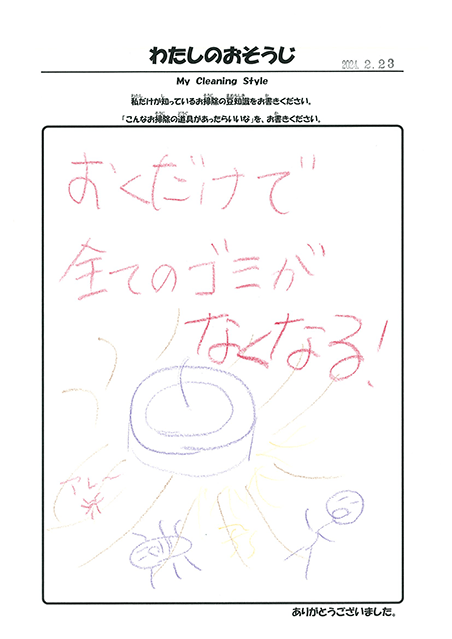 わたしのおそうじ
2024.2.23
My Cleaning Style
私だけが知っているお掃除の豆知識をお書きください。
「こんなお掃除の道具があったらいいな」を、お書きください。
おくだけで
全てのゴミが
なくなる!
アレー
ありがとうございました。